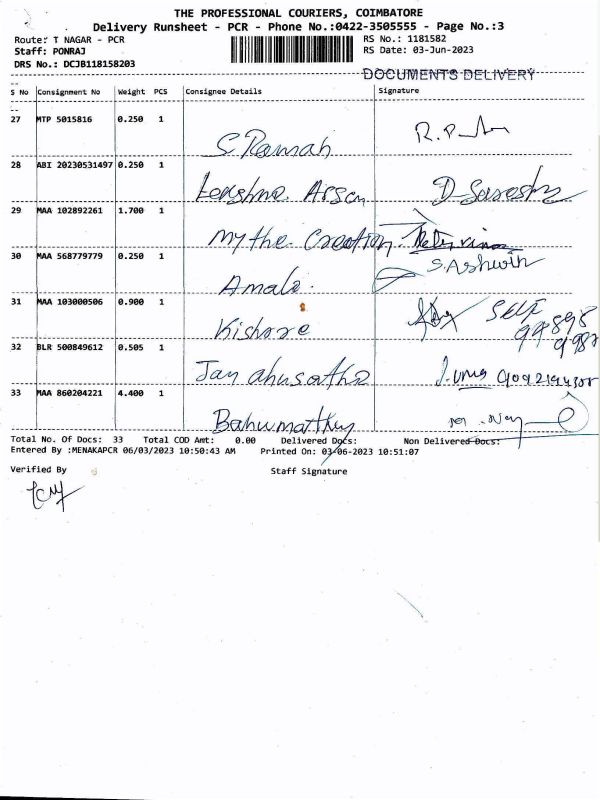 THE PROFESSIONAL COURIERS, COIMBATORE
Delivery Runsheet - PCR - Phone No.:0422-3505555 - Page No.:3
Route: T NAGAR - PCR RS No.: 1181582
Staff: PONRAJ RS Date: 03-Jun-2023
DRS No.: DCJB118158203
DOCUMENTS DELIVERY
S No Consignment No Weight PCS Consignee Details Signature
27 MTP 5015816 0.250 1
S. Raman
28 ABI 20230531497 0.250 1
29 MAA 102892261 1.700 1
Mythe. Creation.
30 MAA 568779779 0.250 1 S. Ashwin
Amala.
31 MAA 103000506 0.900 1 SELF
Kishore
32 BLR 500849612 0.505 1
33 MAA 860204221 4.400 1
Total No. Of Docs: 33 Total COD Amt: 0.00 Delivered Docs: Non Delivered Docs:
Entered By :MENAKAPCR 06/03/2023 10:50:43 AM Printed On: 03-06-2023 10:51:07
Verified By Staff Signature